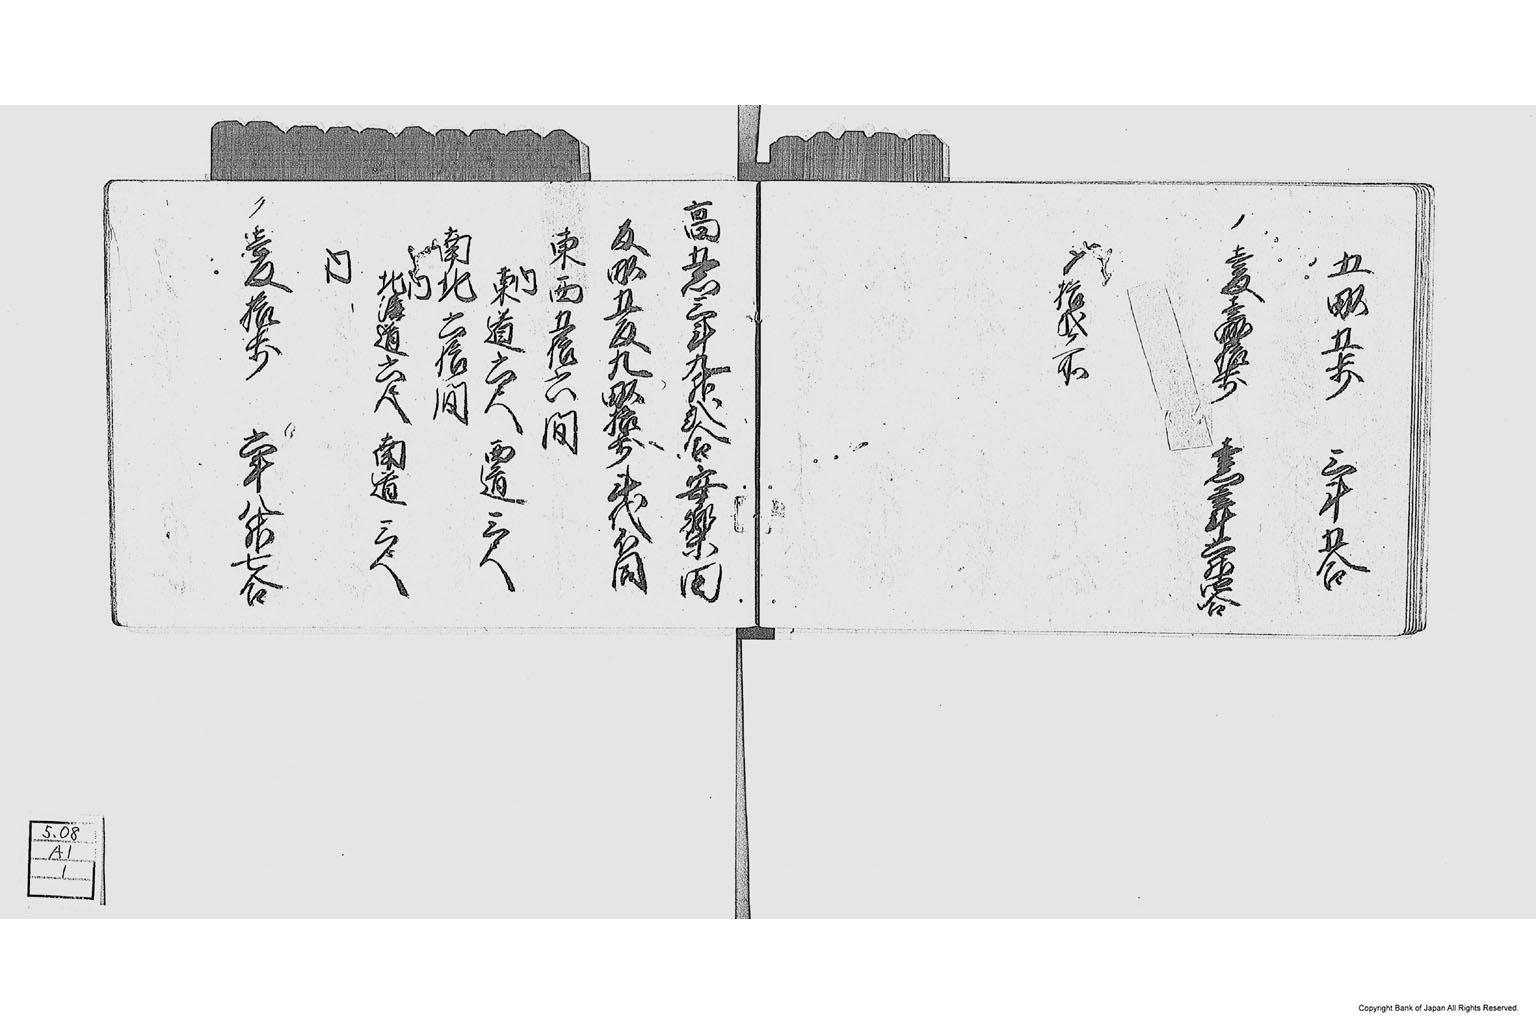 五畝五歩 三斗五合
ノ壱反壱畝拾歩
ノ拾弐ケ所
高五石三斗九升弐合安楽
反畝五反九畝拾歩
東西五拾六間
内
東道六尺 西道三尺
南北六拾間
内
北道六尺 南道三尺
内
ノ壱反拾歩 六斗八升七合
5.08
A1
1
Copyright Bank of Japan All Rights Reserved.